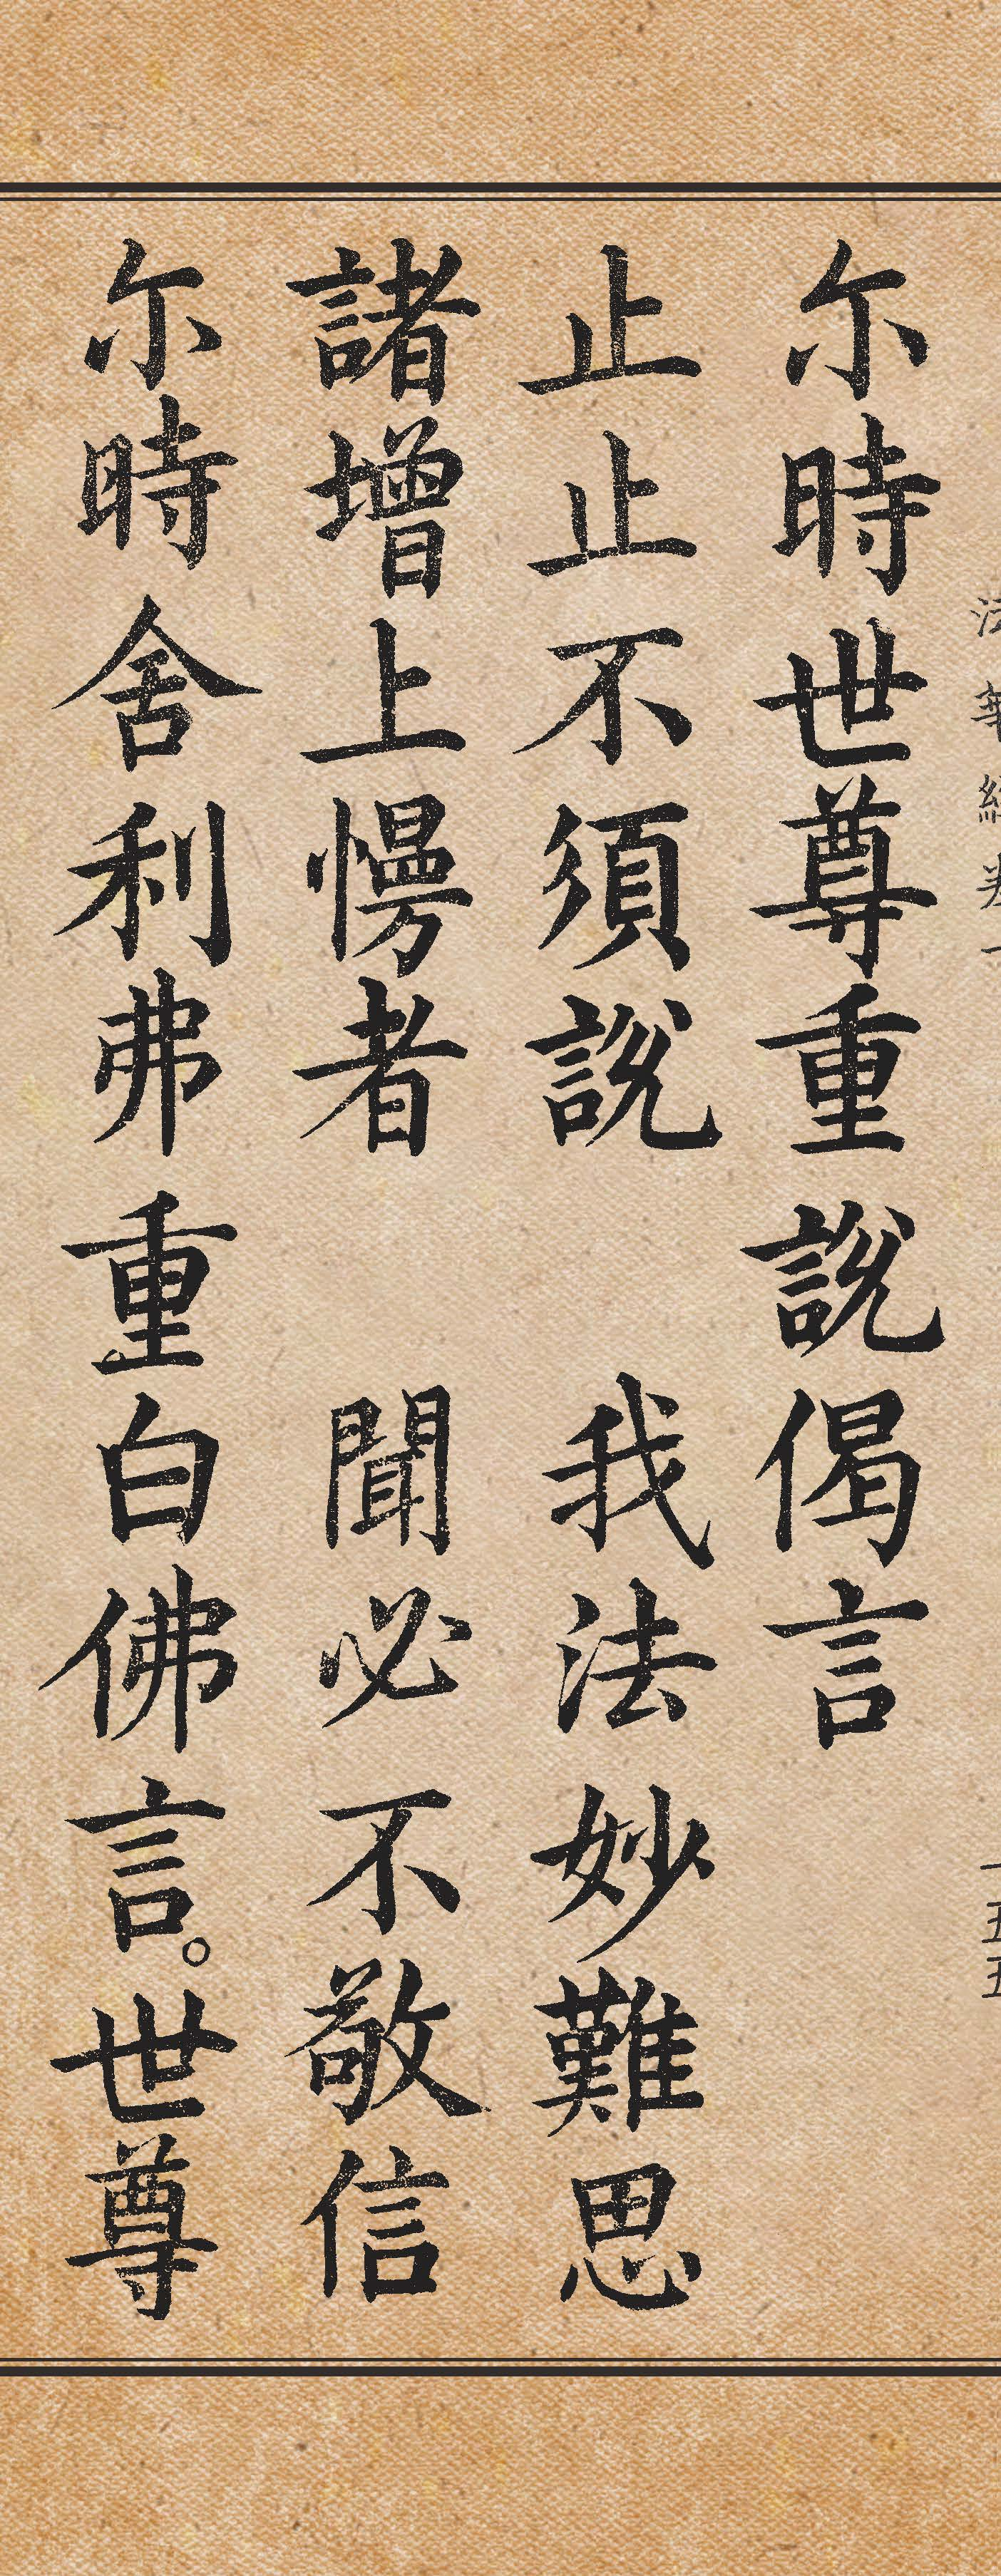 法華經卷一 一五五
尒時世尊重說偈言
止止不須說 我法妙難思
諸增上慢者 聞必不敬信
尒時舍利弗重白佛言。世尊